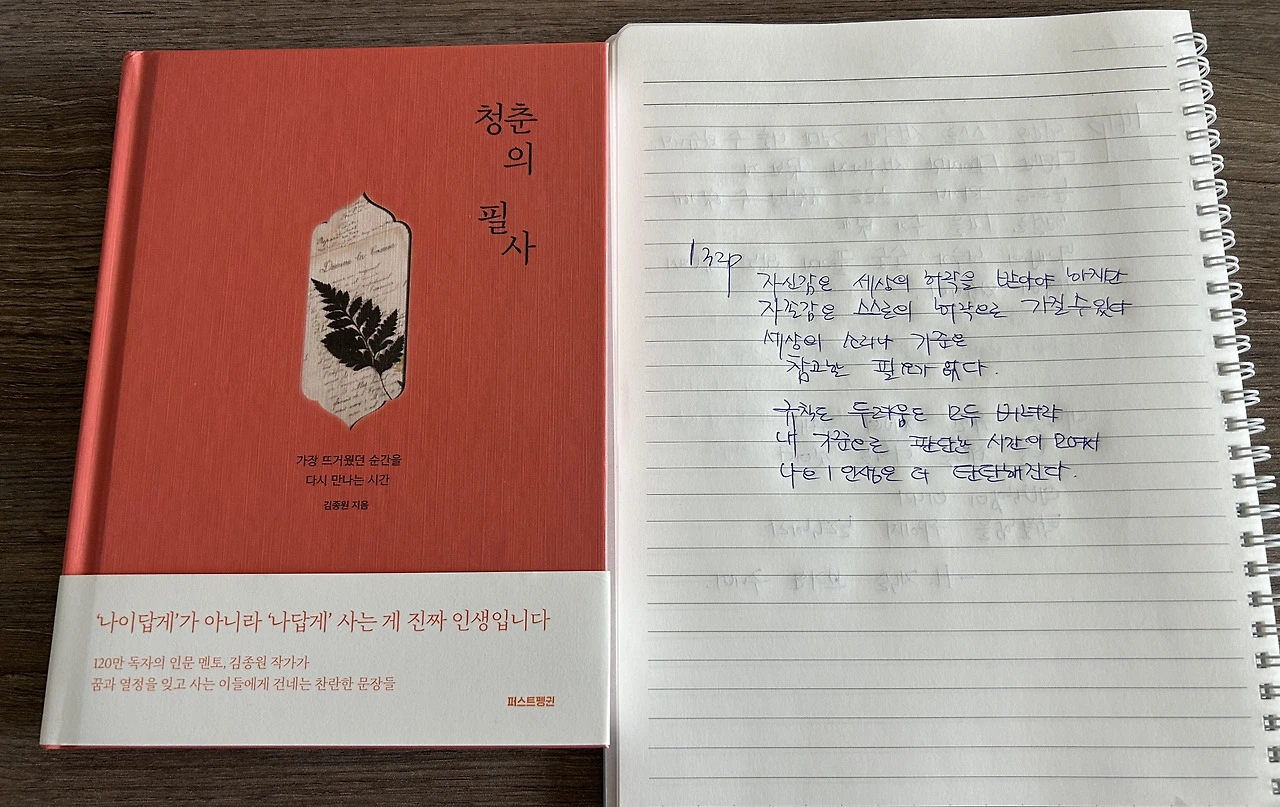 청춘
의
필
사
가장 뜨거웠던 순간을
다시 만나는 시간
김종원 지음
‘나이답게’가 아니라 ‘나답게’ 사는 게 진짜 인생입니다
120만 독자의 인문 멘토, 김종원 작가가
꿈과 열정을 잊고 사는 이들에게 건네는 찬란한 문장들
퍼스트펭귄
132p
자신감은 세상의 허락을 받아야 하지만
자존감은 스스로의 허락으로 가질 수 있다
세상의 소리나 기준은
참고할 필요가 없다.
규칙도 두려움도 모두 버려라
내 기준으로 판단한 시간이 모여서
나의 인생은 더 탄탄해진다.